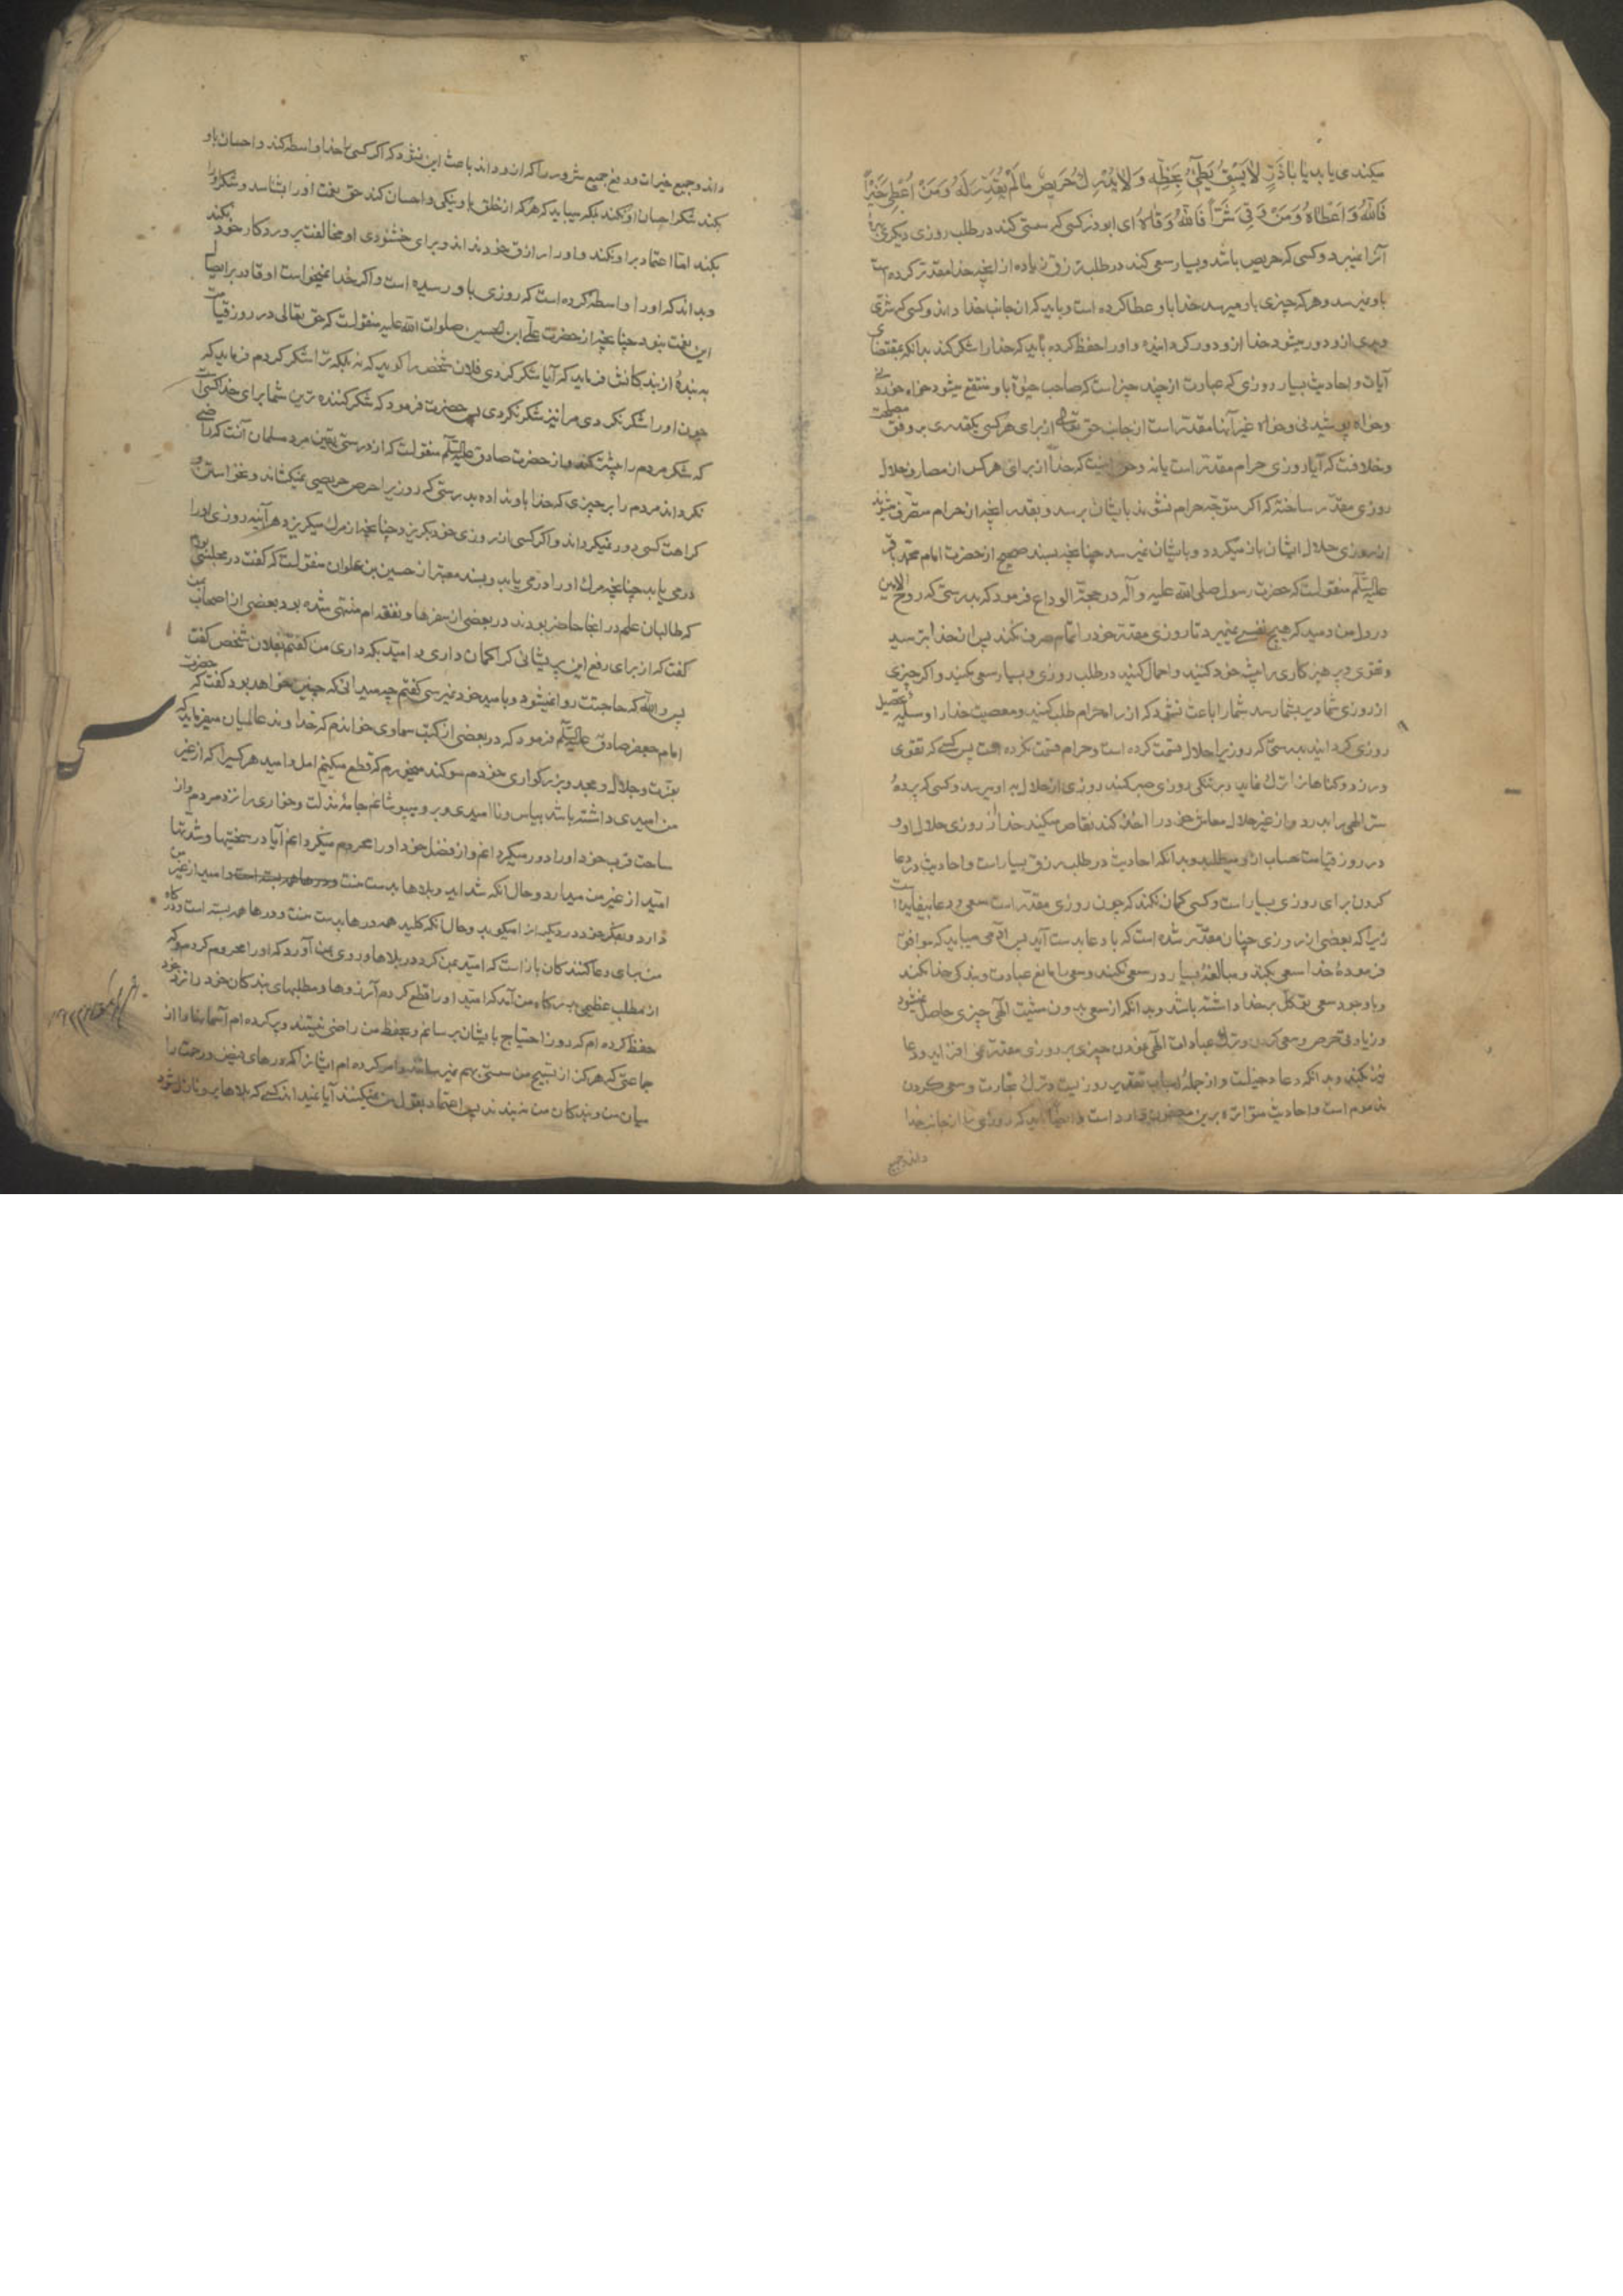 میکند می یابد یا باذر لا یسبق بطیء بحظه و لا یدرک حریص ما لم یقدر له و من اعطی خیراً
فالله اعطاه و من وقی شراً فالله وقاه ای ابوذر کسی که سستی کند در طلب روزی دیگری بهرهٔ
آنرا نمیبرد و کسی که حریص باشد و بسیار سعی کند در طلب رزق زیاده از آنچه خدا مقدر کرده است
باو نمیرسد و هر که چیزی باو میرسد خدا باو عطا کرده است و باید که از جانب خدا داند و کسی که شری
و بدی ازو دور میشود خدا ازو دور کردانیده و اورا حفظ کرده باید که خدا را شکر کند بدانکه بمقتضای
آیات و احادیث بسیار روزی که عبارت از چند چیز است که صاحب حیوة باو منتفع میشود خواه خوردنی
و خواه پوشیدنی و خواه غیر آنها مقدر است از جانب حق تعالی از برای هر کسی بکقدری بر وفق مصلحت
و خلافست که آیا روزی حرام مقدر است یا نه و حق اینست که خدا از برای هر کس از مصارف حلال
روزی مقدر ساخته که اگر متوجه حرام نشوند بایشان برسد و بقدر آنچه از حرام متصرف میشوند
از روزی حلال ایشان باز میگردد و بایشان نمیرسد چنانچه بسند صحیح از حضرت امام محمد باقر
علیه السلم منقولست که حضرت رسول صلی الله علیه و آله در حجة الوداع فرمود که بدرستی که روح الامین
در دل من دمید که هیچ نفسی نمیرد تا روزی مقدر خود را تمام صرف نکند پس از خدا بترسید
و تقوی و پرهیزکاری را پیشه خود کنید و اجمال کنید در طلب روزی و بسیار سعی مکنید و اکر چیزی
از روزی شما دیر بشما رسد شما را باعث نشود که از راه حرام طلب کنید و معصیت خدا را وسیلهٔ تحصیل
روزی کردانید بدرستی که روزیرا حلال قسمت کرده است و حرام قسمت نکرده است پس کسی که تقوی
ورزد و کناهانرا ترک نماید و بر تنکی روزی صبر کند روزی از حلال به او میرسد و کسی که پردهٔ
ستر الهی را بدرد و از غیر حلال معاش خود را اخذ کند تقاص میکند خدا از روزی حلال او و
در روز قیامت حساب ازو میطلبد و بدانکه احادیث در طلب رزق بسیار است و احادیث در دعا
کردن برای روزی بسیار است و کسی کمان نکند که چون روزی مقدر است سعی و دعا بیفایده است
زیرا که بعضی از روزی چنان مقدر شده است که با دعا بدست آید پس آدمی میباید که موافق
فرمودهٔ خدا سعی بکند و مبالغهٔ بسیار در سعی نکند و سعی را مانع عبادت و بندکی خدا نکند
و با وجود سعی توکل بر خدا داشته باشد و بداند که از سعی بدون مشیت الهی چیزی حاصل نمیشود
و زیادتی حرص و سعی کردن و ترک عبادات الهی نمودن چیزی بر روزی مقدر نمی افزاید و دعا
نیز بکند و بداند که دعا دخیلست و از جملهٔ اسباب تقدیر روزیست و ترک تجارت و سعی کردن
مذموم است و احادیث متواتره برین مضمون وارد است و ایضا باید که روزی را از جانب خدا
داند و جمیع
داند و جمیع خیرات و دفع جمیع شرور را که ازو داند باعث این نشود که اکر کسی را خدا واسطه کند و احسان باو
بکند شکر احسان او نکند بلکه میباید که هر که از خلق باو نیکی و احسان کند حق نعمت اورا بشناسد و شکر اورا
بکند اما اعتماد بر او نکند و اورا رازق خود نداند و برای خشنودی او مخالفت پروردکار خود نکند
و بداند که اورا واسطه کرده است که روزی باو رسیده است و اکر خدا نمیخواست او قادر بر ایصال
این نعمت نبود چنانچه از حضرت علی ابن الحسین صلوات الله علیه منقولست که حق تعالی در روز قیامت
به بندهٔ از بندکانش فرماید که آیا شکر کردی فلان شخص را کوید که نه بلکه ترا شکر کردم فرماید که
چون اورا شکر نکردی مرا نیز شکر نکردی پس حضرت فرمود که شکر کننده ترین شما برای خدا کسی است
که شکر مردم را بیشتر کند و از حضرت صادق علیه السلم منقولست که از درستی یقین مرد مسلمان آنست که راضی
نکرداند مردم را بر چیزی که خدا باو نداده بدرستی که روزیرا حرص حریصی نمیکشاند و نخواستن و
کراهت کسی دور نمیکرداند و اکر کسی از روزی خود بکریزد چنانچه از مرک میکریزد هر آینه روزی اورا
در می یابد چنانچه مرک اورا در می یابد و بسند معتبر از حسین بن علوان منقولست که کفت در مجلسی بودم
که طالبان علم در انجا حاضر بودند در بعضی از سفرها و نفقه ام منتهی شده بود بعضی از اصحاب بمن
کفت که از برای رفع این پریشانی که را کمان داری و امید بکه داری من کفتم بفلان شخص کفت
پس والله که حاجتت روا نمیشود و بامید خود نمیرسی کفتم چه میدانی که چنین خواهد بود کفت که حضرت
امام جعفر صادق علیه السلم فرمود که در بعضی از کتب سماوی خواندم که خداوند عالمیان میفرماید که
بعزت و جلال و مجد و بزرکواری خودم سوکند میخورم که قطع میکنم امل و امید هر کسی را که از غیر
من امیدی داشته باشد بیاس و ناامیدی و بر او بپوشانم جامهٔ مذلت و خواری را نزد مردم و از
ساحت قرب خود اورا دور میکردانم و از فضل خود اورا محروم میکردانم آیا در سختیها و شدتها
امید از غیر من میدارد و حال آنکه شداید و بلاها بدست منست و درها همه بسته است و امید از غیر من
دارد و بفکر خود در دیکرانرا میکوبد و حال آنکه کلید همه درها بدست منست و درها همه بسته است و درکاه
من برای دعا کنندکان باز است که امید بمن کرد در بلاها و روی بمن آورد که اورا محروم کردم و که
از مطلب عظیمی بدرکاه من آمد که امید اورا قطع کردم آرزوها و مطلبهای بندکان خود را نزد خود
حفظ کرده ام که روز احتیاج بایشان برسانم و بحفظ من راضی نیستند و پر کرده ام آسمانها را از
جماعتی که هرکز از تسبیح من سستی بهم نمیرسانند و امر کرده ام ایشانرا که درهای فیض و رحمت را
میان من و بندکان من نبندند پس اعتماد بقول من نمیکنند آیا نمیداند کسی که بلاها برو نازل شود